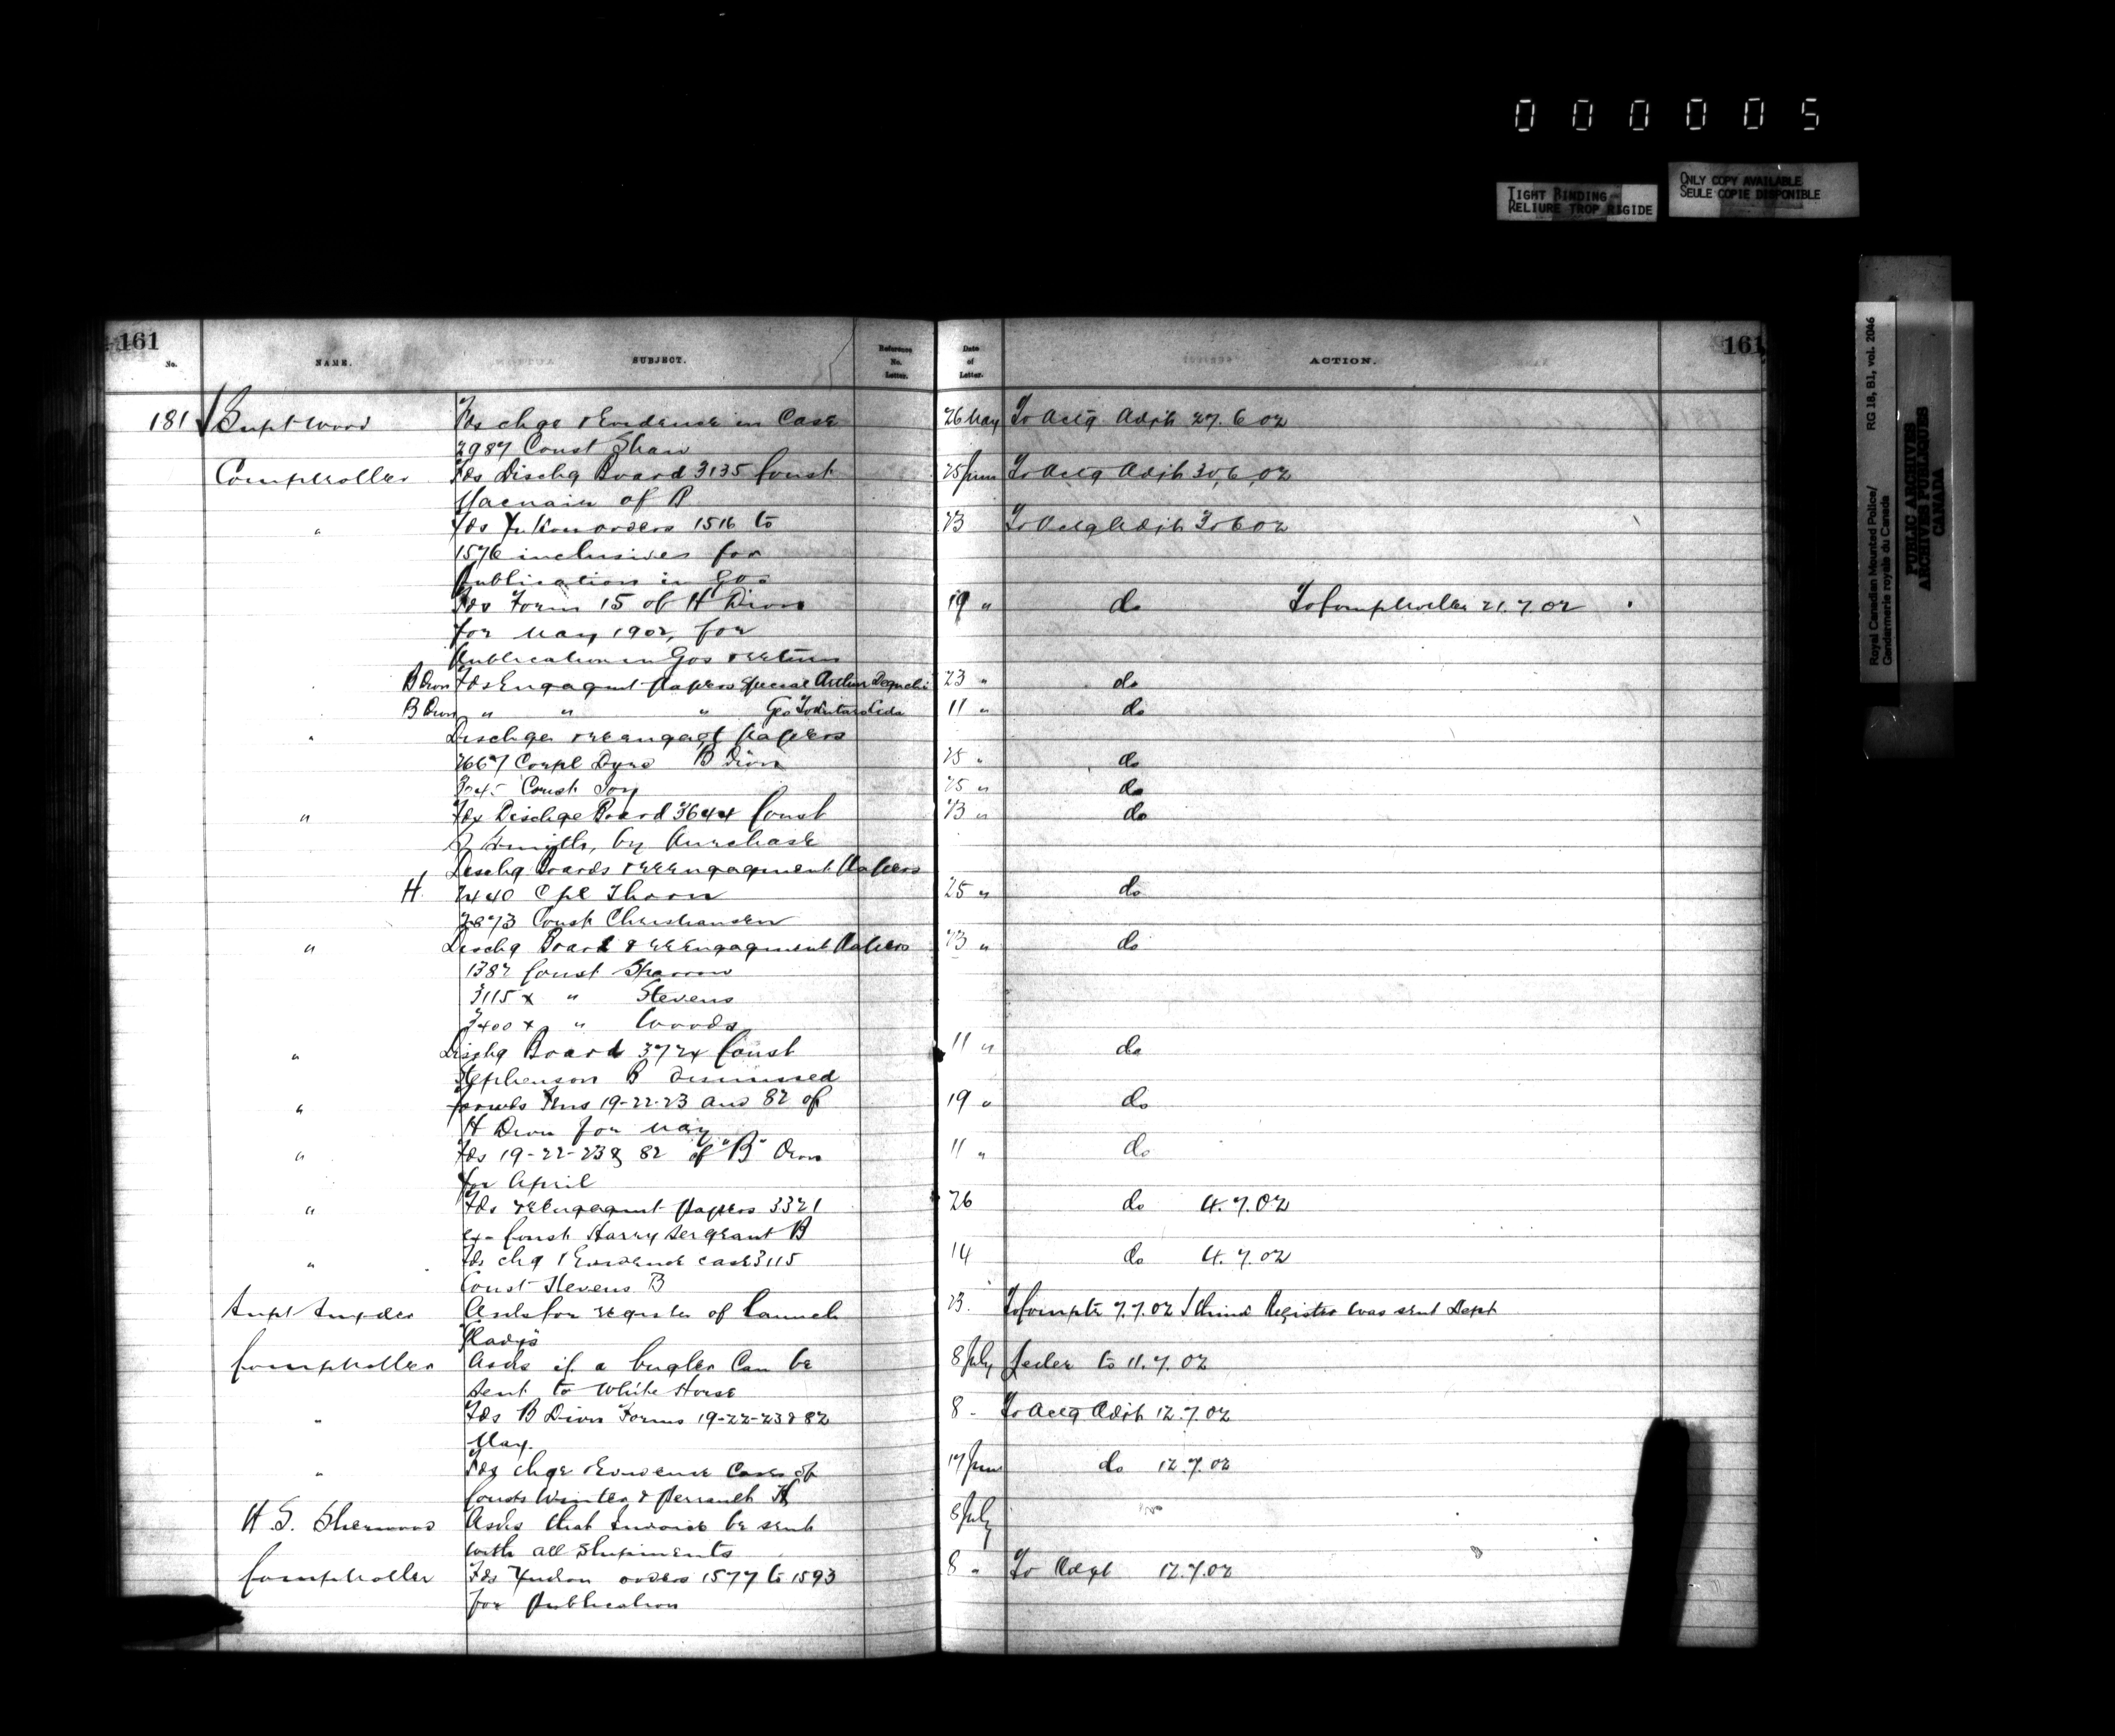 000005
TIGHT BINDING
RELIURE TROP RIGIDE
ONLY COPY AVAILABLE
SEULE COPIE DISPONIBLE
Royal Canadian Mounted Police/
Gendarmerie royale du Canada
RG 18, B1, vol. 2046
PUBLIC ARCHIVES
ARCHIVES PUBLIQUES
CANADA
161 161
No. NAME. SUBJECT. Reference No. Letter. Date of Letter. ACTION.
181 Supt Wood Fds chge & Evidence in Case 26 May To Actg Adjt 27.6 02
2987 Const Shaw
Comptroller Fds Dischg Board 3135 Const 25 June To Actg Adjt 30,6,02
Macnair of B
" Fds Yukon orders 1516 to 23 To Actg Adjt 30 6 02
1576 inclusives for
Publication in GOs
Fds Form 15 of H Divn 19 " do To Comptroller 21.7.02
for May 1902, for
Publication in GOs & return
B Divn Fds Engagmt papers Special Arthur 23 " do
B Divn " " " Geo 11 " do
" Dischge & reengagt papers
2667 Corpl Dyre B Divn 25 " do
3045 Const Joy 25 " do
" Fds Dischge Board 3644 Const 23 " do
Smith, by Purchase
Dischg Boards & reengagement Papers
H. 2440 Cpl Thorn 25 " do
2873 Const Christiansen
" Dischg Board & reEngagment Papers 23 " do
1387 Const
3115 x " Stevens
3400 x " Woods
" Dischg Board 3724 Const 11 " do
Stephenson B Dismissed
" forwds Fms 19-22-23 and 82 of 19 " do
H Divn for May
" Fds 19-22-23 & 82 of "B" Divn 11 " do
for April
" Fds reEngagmt papers 3321 26 do 4.7.02
ex-Const Harry Sergeant B
" Fds chg & Evidence case 3115 14 do 4.7.02
Const Stevens B
Supt Snyder Asks for register of launch 23. To Comptr 7.7.02 I think Register was sent Dept
"Gladys"
Comptroller Asks if a bugler Can be 8 July to 11.7.02
sent to White Horse
" Fds B Divn Forms 19-22-23 & 82 8 " To Actg Adjt 12.7.02
May.
" Fds chge & Evidence Cases of 17 June do 12.7.02
Consts Winter & Perrault H
H. G. Sherwood Asks that Invoice be sent 8 July
with all shipments
Comptroller Fds Yukon orders 1577 to 1593 8 " To Adjt 12.7.02
for publication